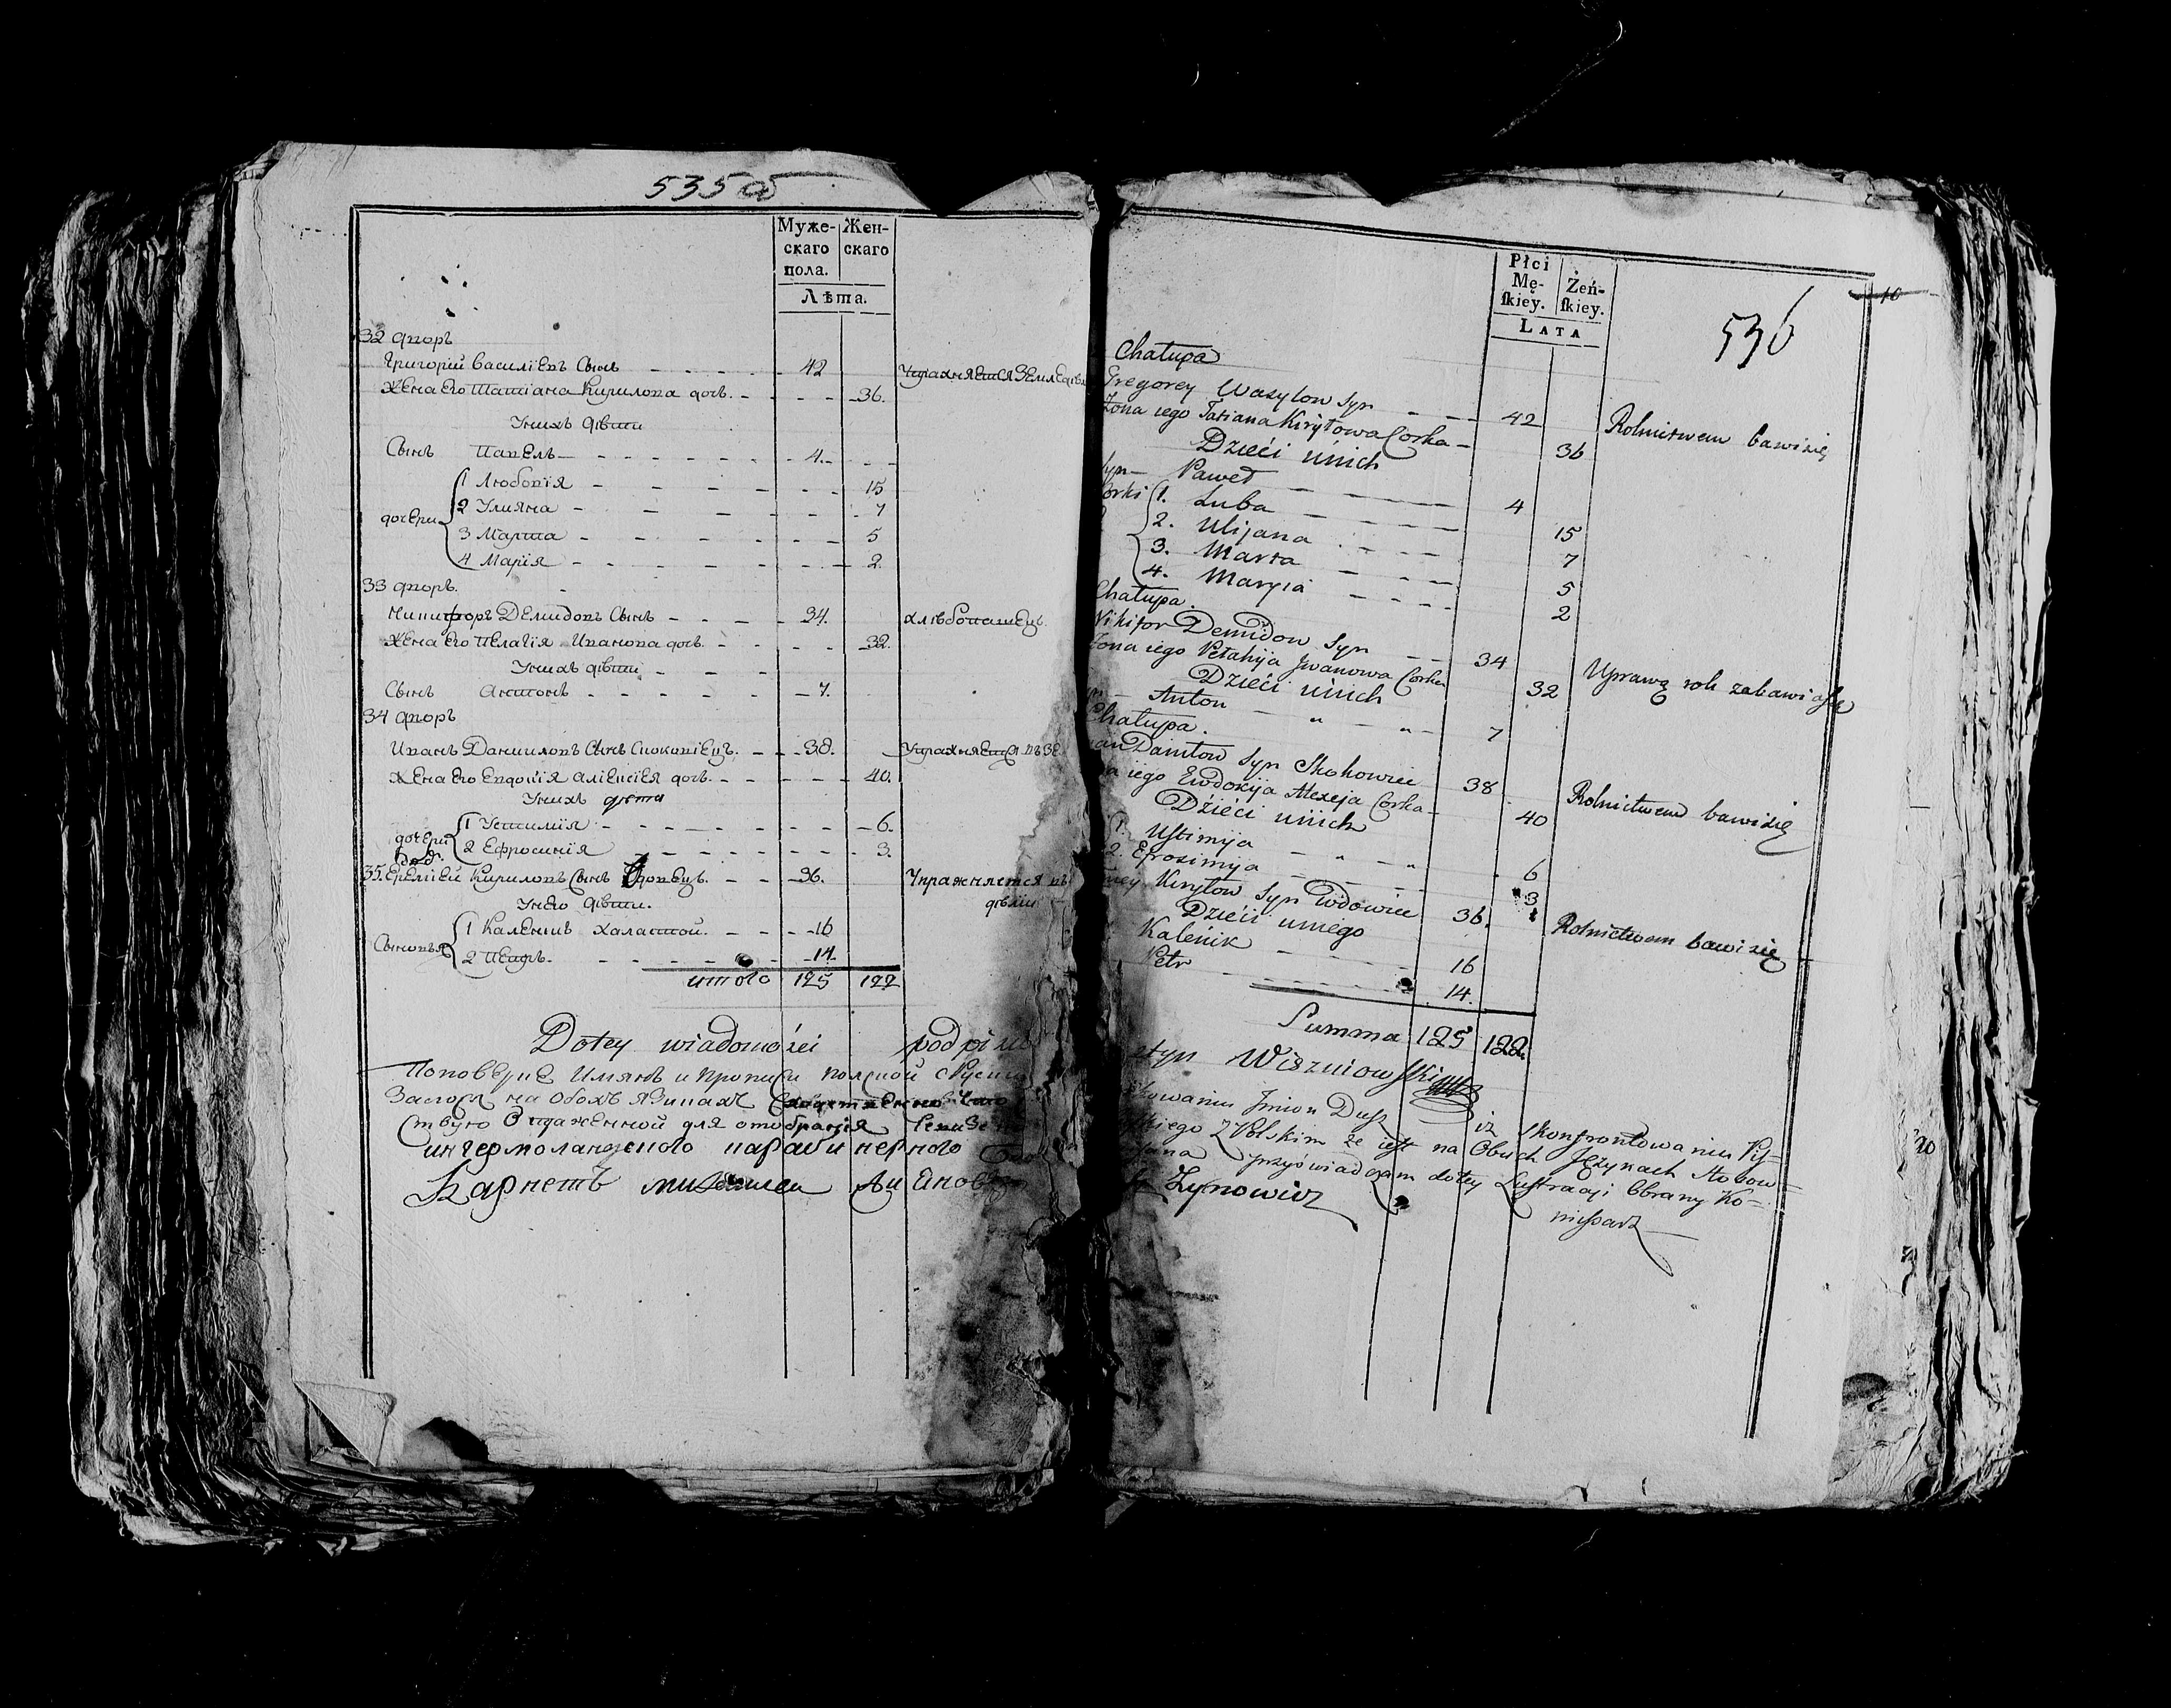 535 об
Муже-
скаго
пола.
Жен-
скаго
Лѣта.
32 дворъ
Григорій Василіевъ Сынъ 42 Упражняется Земледѣл
Жена его Татіана Кирилова дочь. 36.
Унихъ дѣти
Сынъ Павелъ 4.
дочери 1 Любовія 15
2 Улияна 7
3 Марта 5
4 Марія 2.
33 дворъ.
Никифоръ Демидовъ Сынъ 34. хлѣбопашець.
Жена его Пелагія Иванова дочь. 32.
Унихъ дѣти
Сынъ Антонъ 7.
34 дворъ
Иванъ Даниловъ Сынъ Скоковіецъ. 38. Упражняется въ Зе
Жена его Евдокія Аліексіея дочь. 40.
Унихъ дѣти
дочери 1 Устимія 6.
2 Ефросинія 3.
35. Еремѣй Кириловъ Сынъ Вдовецъ. 36. Упражняется въ
Унего дѣти. дѣліи
Сыновья 1 Каленикъ холостой. 16
2 Петръ. 14.
итого 125 122
Dotey wiadomości podpis
Поповѣрке Имянъ и прописи полской сРускою
Ингермоландского карабинерного
Карнетъ
536
Płci
Mę-
ſkiey.
Żeń-
ſkiey.
Lata
Chałupa
Gregorey Wasylow Syn 42 Rolnictwem bawi się
Żona iego Tatiana Kiryłowa Corka 36
Dzieći unich
Syn Paweł 4
Corki 1. Luba 15
2. Ulijana 7
3. Marta 5
4. Maryia 2
Chałupa.
Nikifor Demidow Syn 34 Uprawą roli zabawia się
Żona iego Pełahija Jwanowa Corka 32
Dzieći unich
Anton 7
Chałupa.
Daniłow Syn Skokowiec 38 Rolnictwem bawi się
iego Ewdokija Alexeja Corka 40
Dzieći unich
1. Ustimija 6
2. Efrosimija 3
Kiryłow Syn Wdowiec 36. Rolnictwem bawi się
Dzieći uniego
Kaleńik 16
Petr 14.
Summa 125 122.
Wiszniowski
Jmion Dusz iz skonfrontowaniu Pis=
Z Polskim że iest na Obuch Językach Stosow=
przyświadczam dotey Lustracyi Obrany Ko=
Zynowicz
missarz